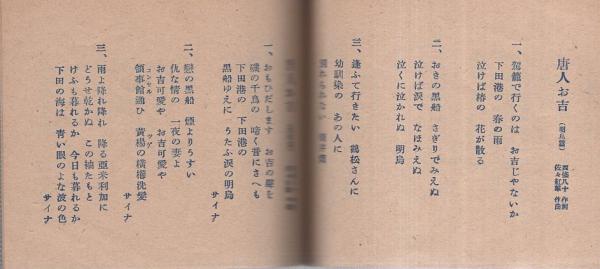 唐人お吉（明烏篇）
西條八十 作詞
佐々紅華 作曲
一、駕籠で行くのは お吉じやないか
下田港の 春の雨
泣けば椿の 花が散る
二、おきの黒船 さぎりでみえぬ
泣けば涙で なほみえぬ
泣くに泣かれぬ 明烏
三、逢ふて行きたい 鶴松さんに
幼馴染の あの人に
一、おもひだします お吉の聲を
磯の千鳥の 啼く音にさへも
下田港の 下田港の
黒船ゆゑに うたふ涙の明烏
サイナ
二、戀の黒船 煙よりうすい
仇な情の 一夜の妻よ
お吉可愛や お吉可愛や
領事館通ひ 黄楊の横櫛洗髪
コンシル
ツゲ
サイナ
三、雨よ降れ降れ 降る亜米利加に
どうせ乾かぬ この袖たもと
けふも暮れるか 今日も暮れるか
下田の海は 青い眼のよな波の色
サイナ